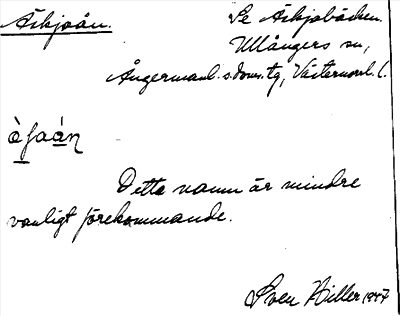 Äskjaån. Se Äskjabäcken.
Ullångers sn,
Ångermanl. s. doms. tg, Västernorrl. l.
Detta namn är mindre
vanligt förekommande.
Sven Hiller 1947